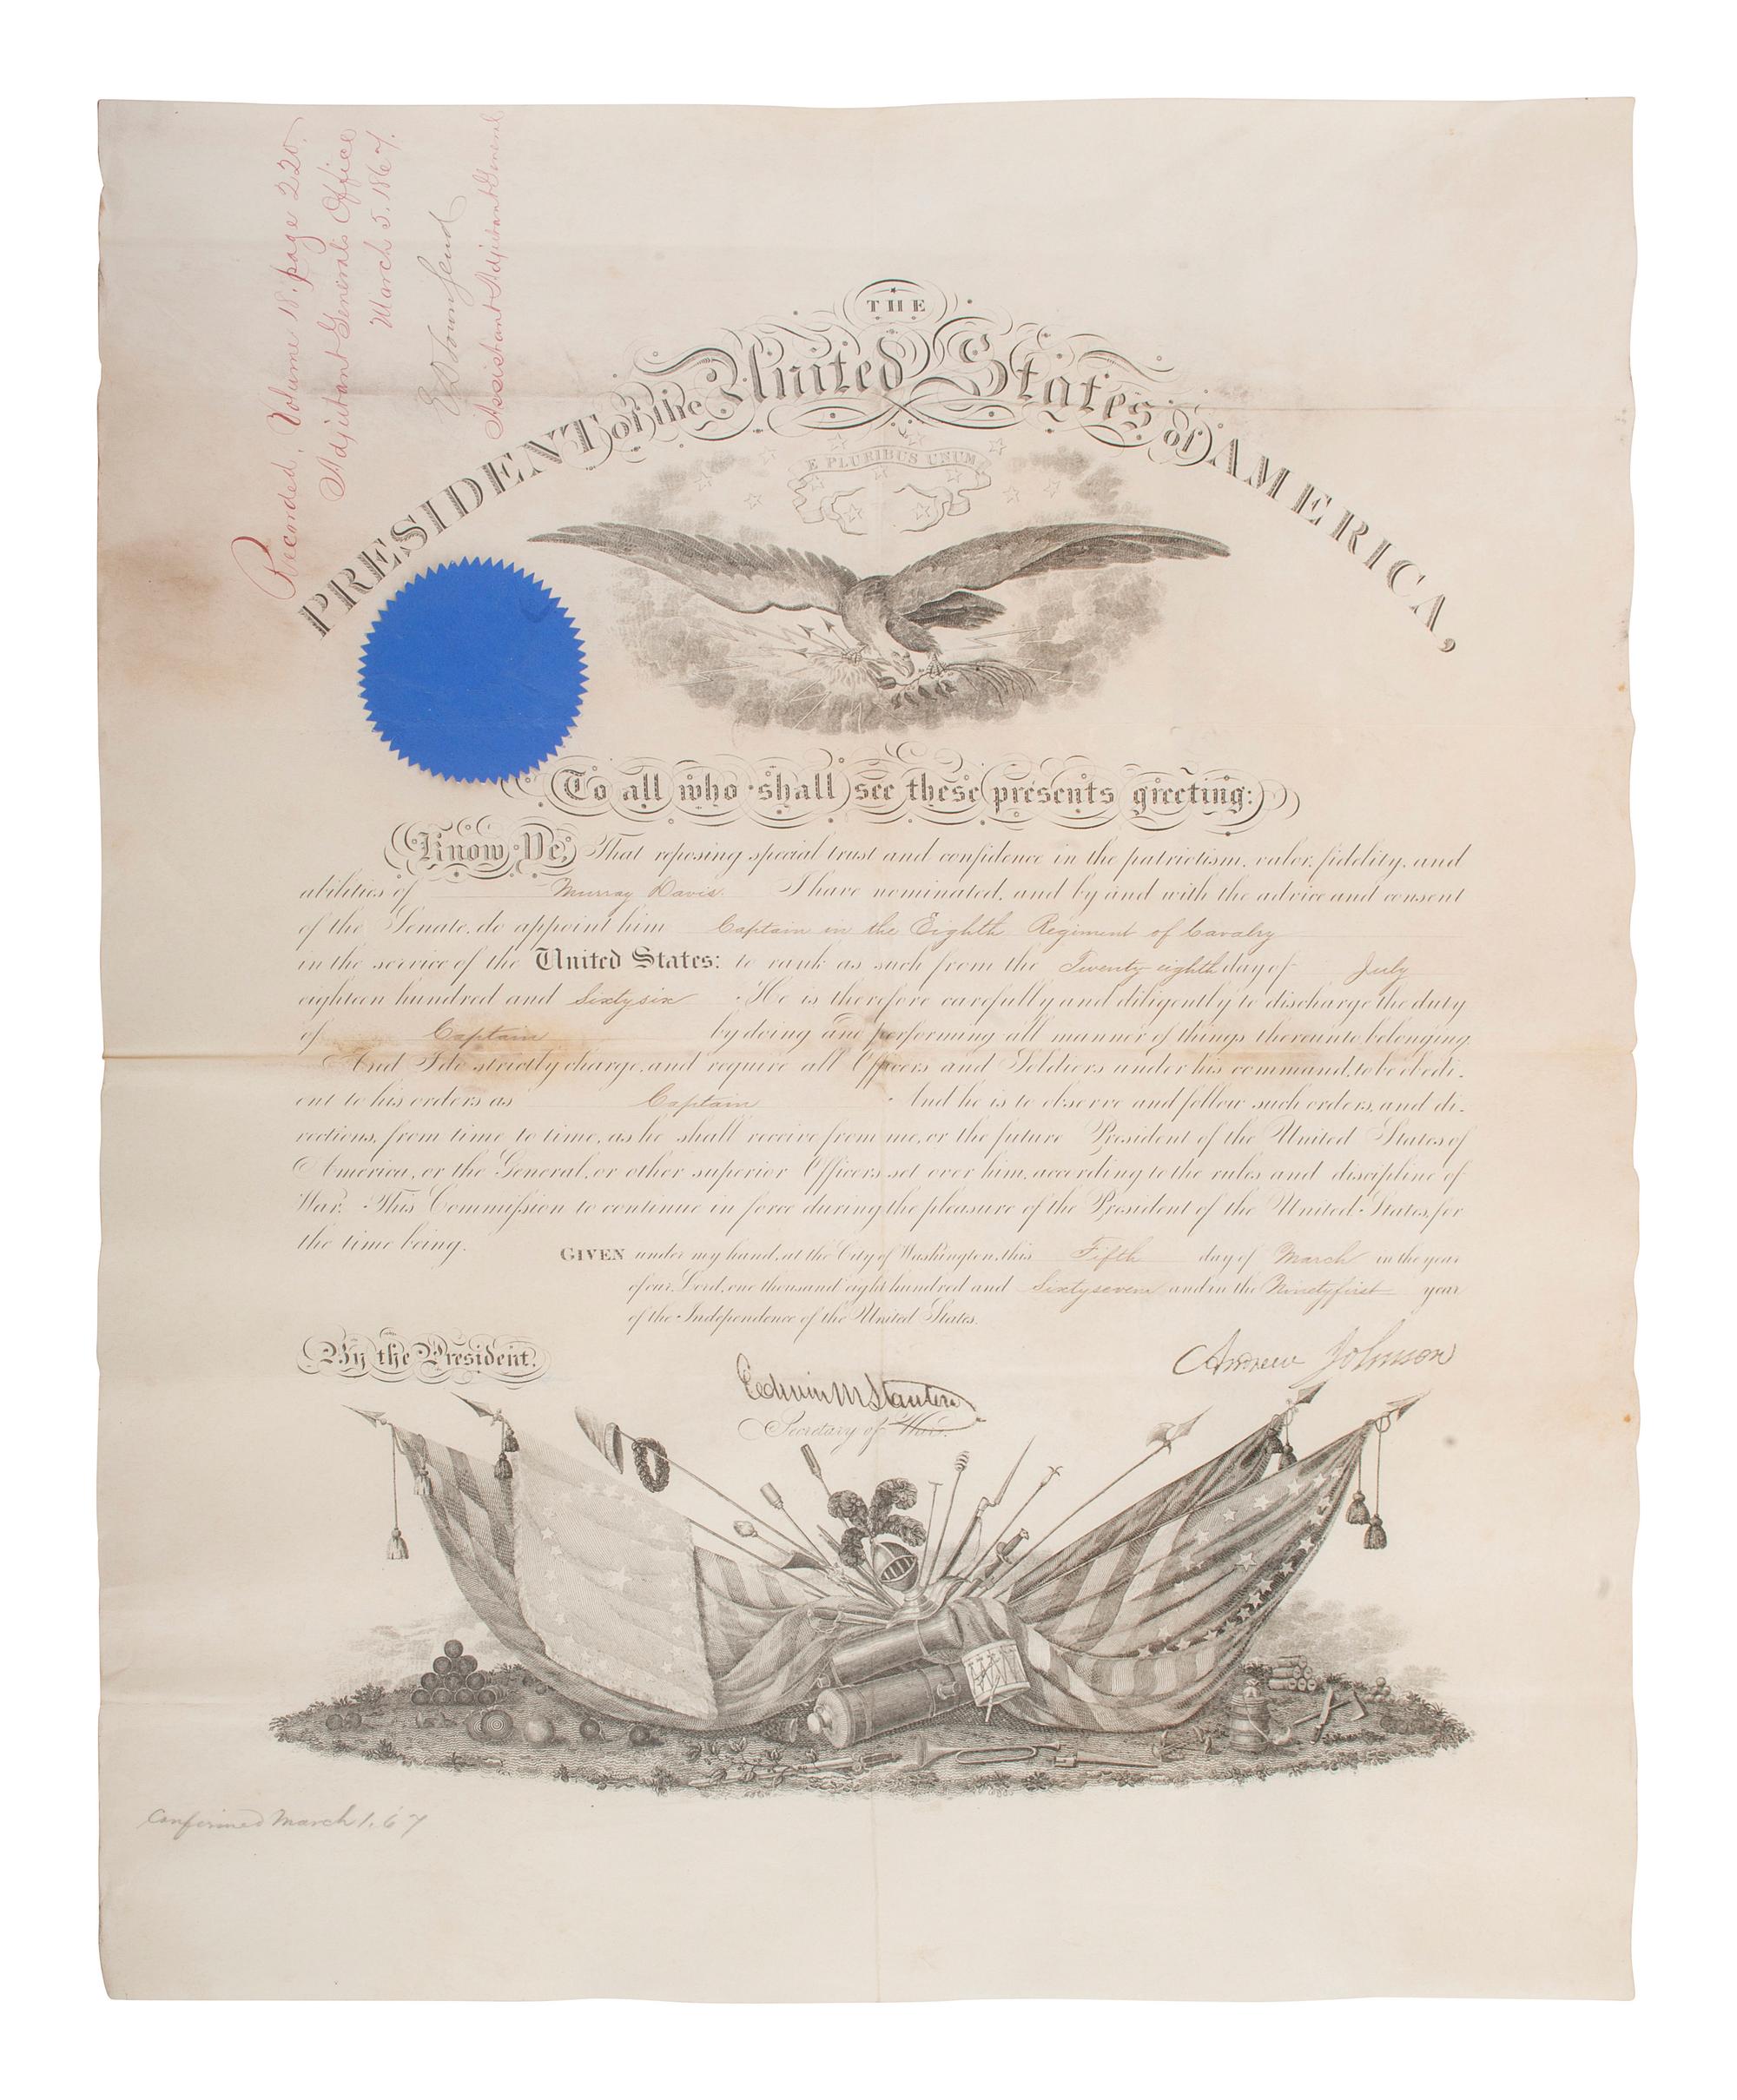 Recorded, Volume 18. page 220.
Adjutant General's Office
March 5. 1867.
E D Townsend
Assistant Adjutant General
THE
PRESIDENT of the United States of AMERICA,
E PLURIBUS UNUM
To all who shall see these presents greeting:
Know Ye, That reposing special trust and confidence in the patriotism, valor, fidelity, and
abilities of Murray Davis. I have nominated, and by and with the advice and consent
of the Senate, do appoint him Captain in the Eighth Regiment of Cavalry
in the service of the United States: to rank as such from the Twenty eighth day of July
eighteen hundred and Sixty six. He is therefore carefully and diligently to discharge the duty
of Captain by doing and performing all manner of things thereunto belonging.
And I do strictly charge, and require all Officers and Soldiers under his command, to be obedi-
ent to his orders as Captain. And he is to observe and follow such orders, and di-
rections, from time to time, as he shall receive from me, or the future President of the United States of
America, or the General, or other superior Officers set over him, according to the rules and discipline of
War. This Commission to continue in force during the pleasure of the President of the United States, for
the time being.
GIVEN under my hand, at the City of Washington, this Fifth day of March in the year
of our Lord, one thousand eight hundred and Sixty seven and in the Ninety first year
of the Independence of the United States.
By the President.
Andrew Johnson
Edwin M Stanton
Secretary of War.
Confirmed March 1. 67